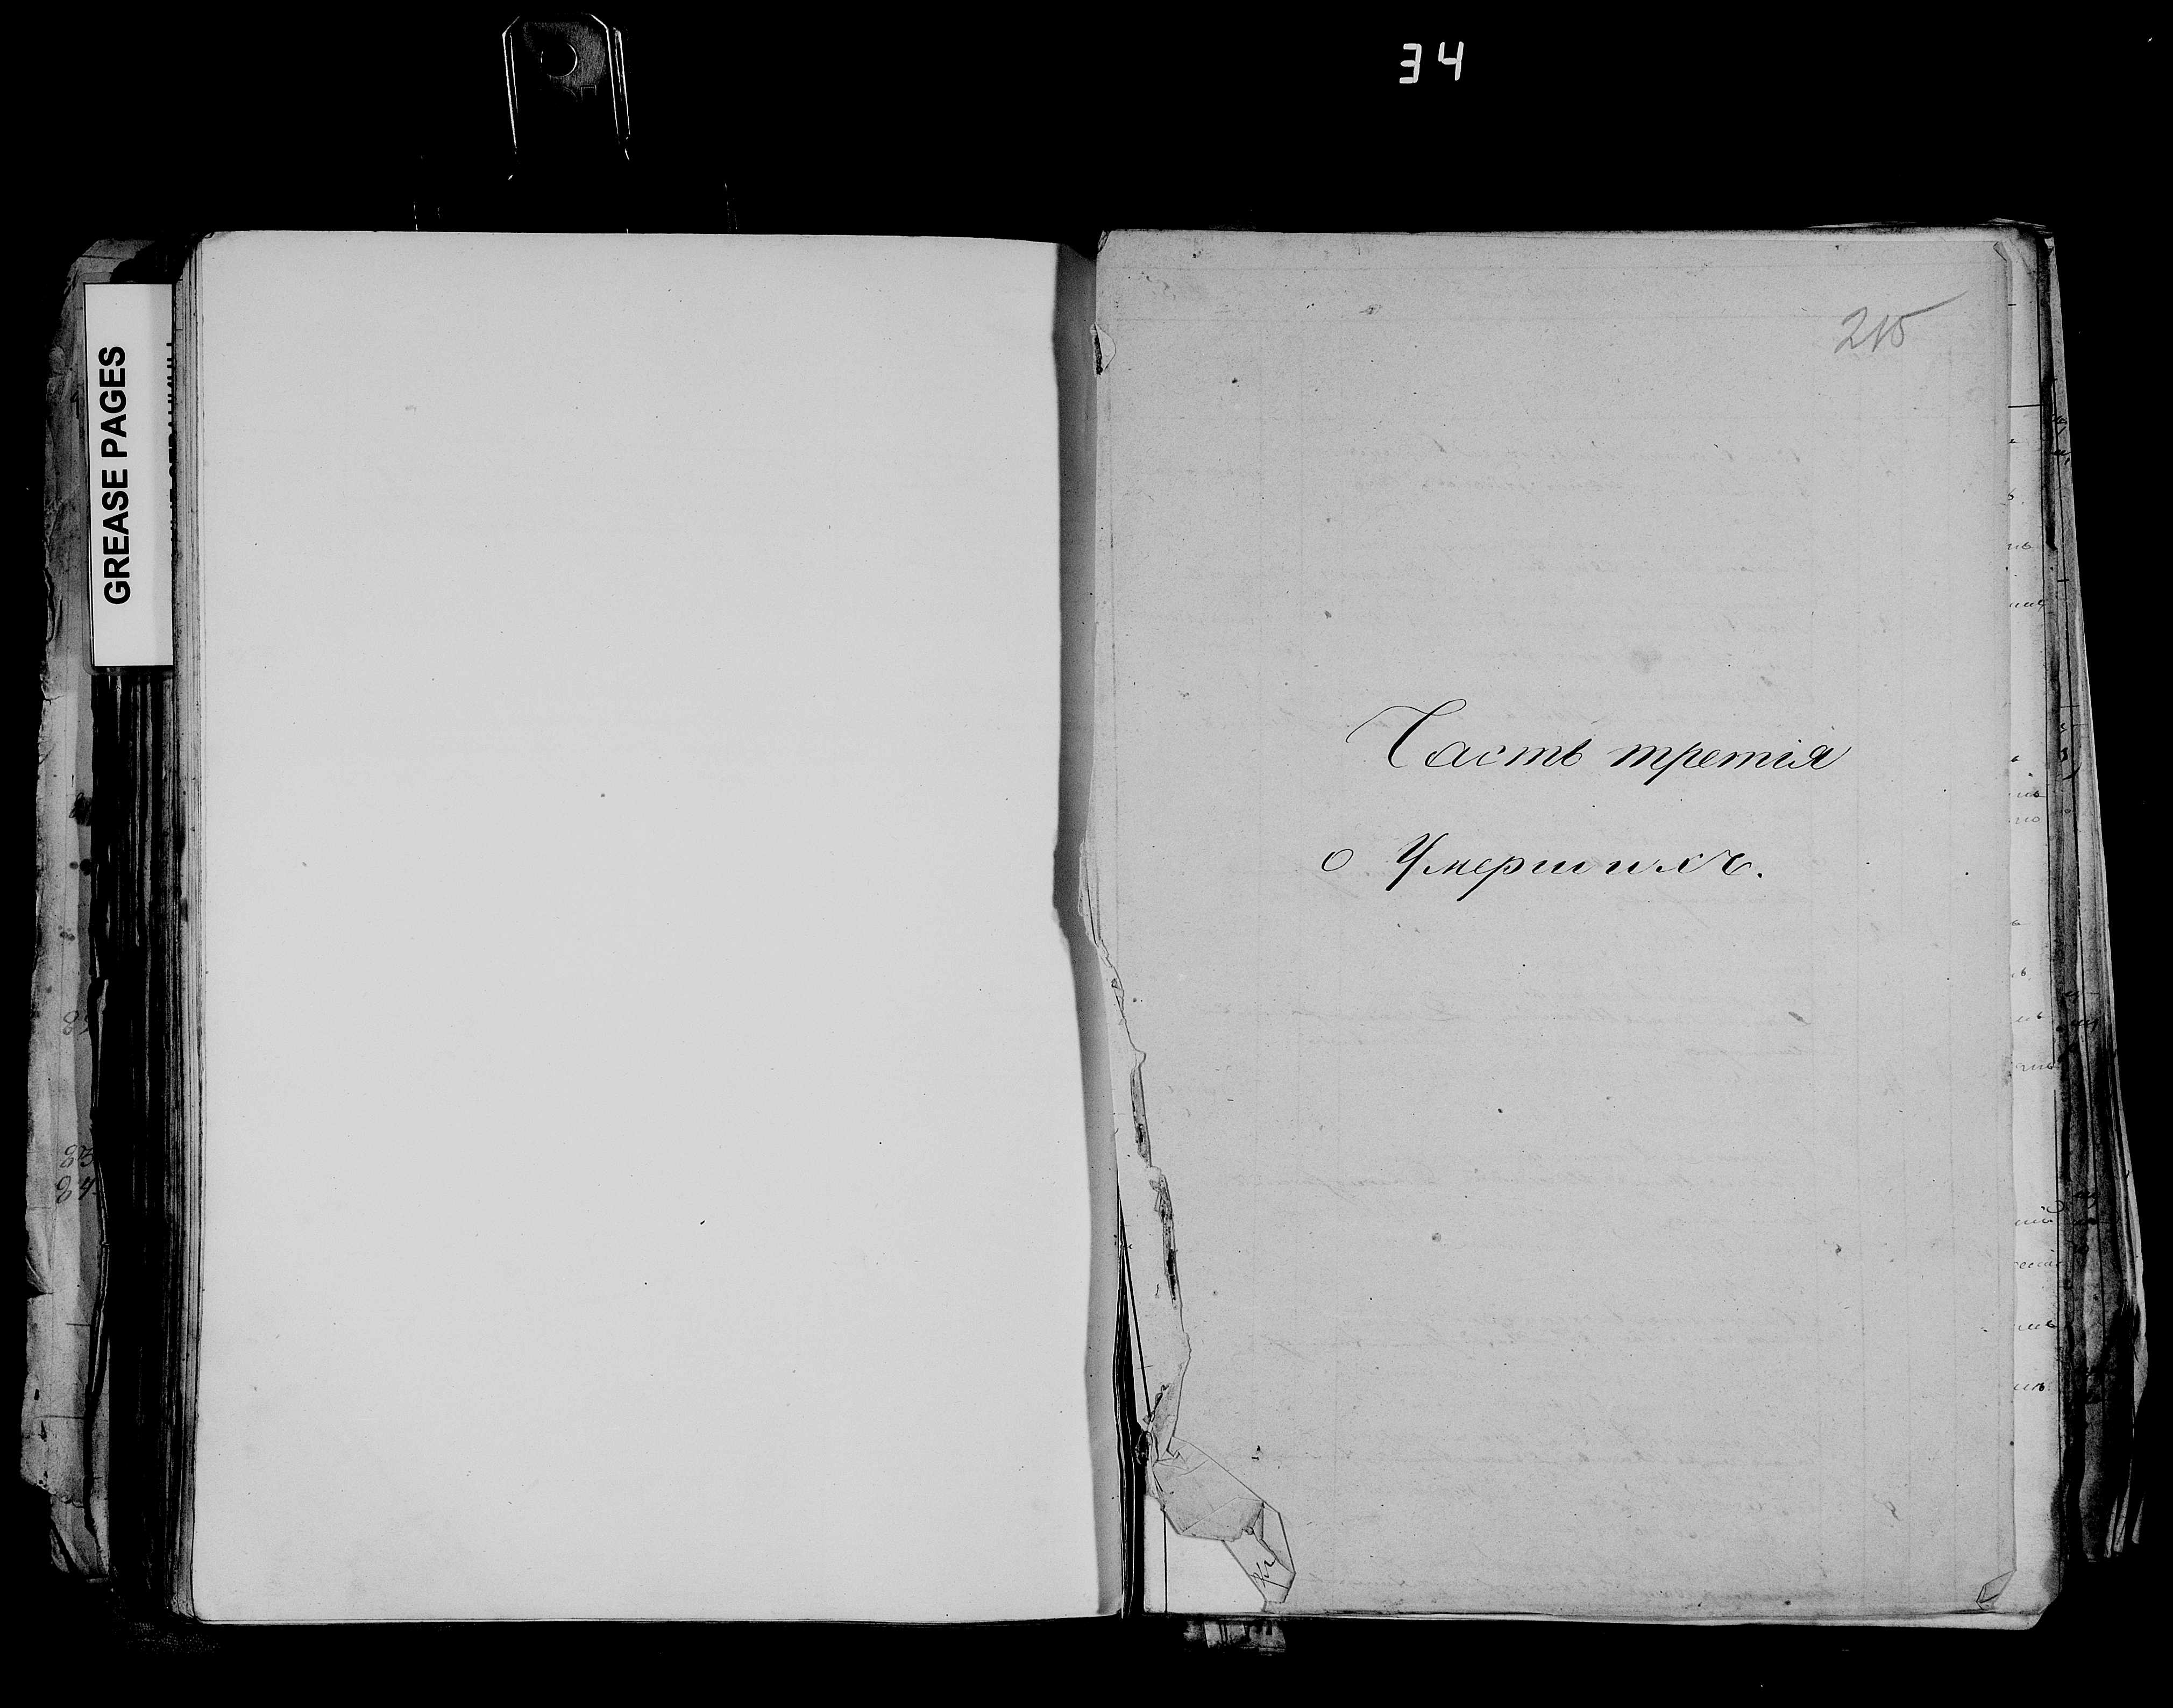 34
GREASE PAGES
215
Часть третія
о Умершихъ.
83
84